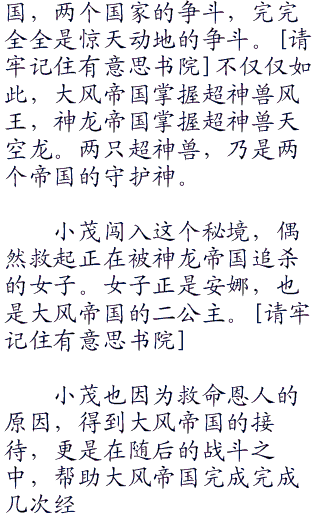 国，两个国家的争斗，完完
全全是惊天动地的争斗。[请
牢记住有意思书院]不仅仅如
此，大风帝国掌握超神兽风
王，神龙帝国掌握超神兽天
空龙。两只超神兽，乃是两
个帝国的守护神。
小茂闯入这个秘境，偶
然救起正在被神龙帝国追杀
的女子。女子正是安娜，也
是大风帝国的二公主。[请牢
记住有意思书院]
小茂也因为救命恩人的
原因，得到大风帝国的接
待，更是在随后的战斗之
中，帮助大风帝国完成完成
几次经